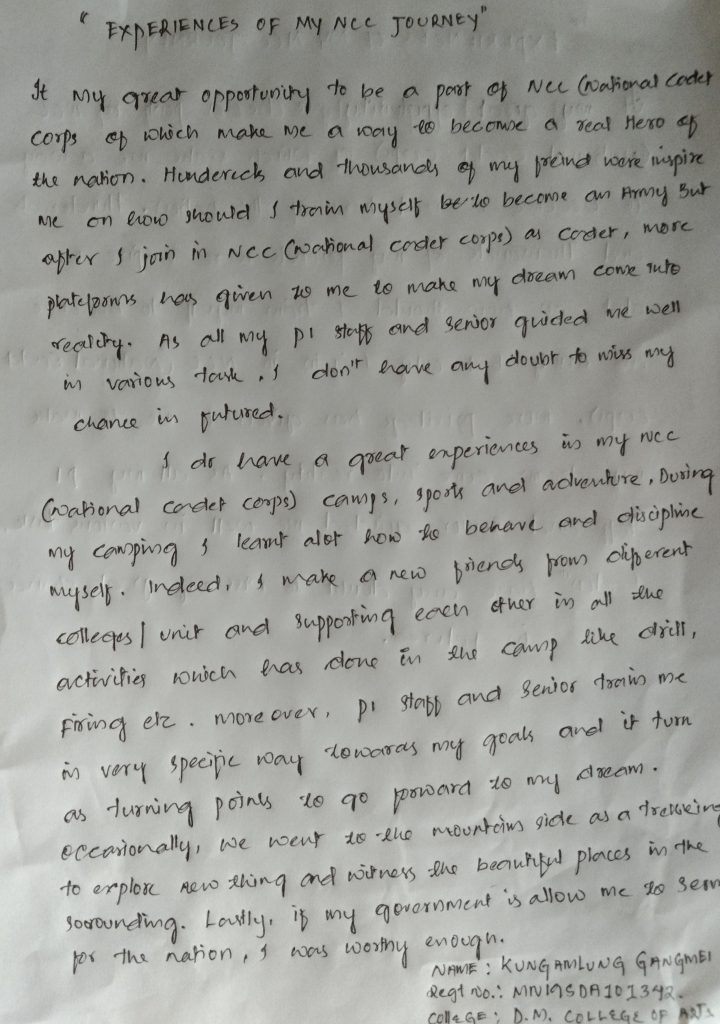 "EXPERIENCES OF MY NCC JOURNEY"
It my great opportunity to be a part of NCC (National Cadet
corps of which make me a way to become a real Hero of
the nation. Hundereds and thousands of my freind were inspire
me on how should I train myself be to become an Army But
after I join in NCC (National cadet corps) as cadet, more
plateforms has given to me to make my dream come into
reality. As all my PI staff and senior guided me well
in various task, I don't have any doubt to miss my
chance in futured.
I do have a great experiences in my NCC
(National cadet corps) camps, sports and adventure, During
my camping I learnt alot how to behave and discipline
myself. Indeed, I make a new friends from different
colleges/unit and supporting each other in all the
activities which has done in the camp like drill,
Firing etc. moreover, PI staff and Senior train me
in very specific way towards my goals and it turn
as turning points to go forward to my dream.
occasionally, we went to the mountain side as a trekking
to explore new thing and witness the beautiful places in the
sorounding. Lastly, if my government is allow me to serve
for the nation, I was worthy enough.
NAME : KUNGAMLUNG GANGMEI
Regt No.: MN19SDA101342.
COLLEGE : D.M. COLLEGE OF ARTS